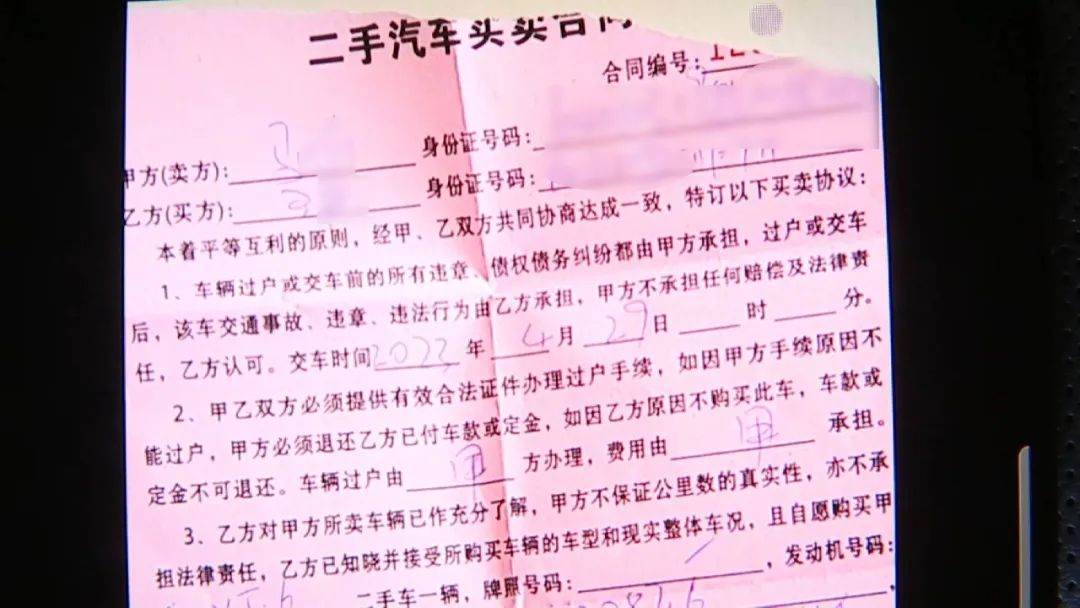 二手汽车买卖合同
合同编号:
甲方(卖方): 身份证号码:
乙方(买方): 身份证号码:
本着平等互利的原则，经甲、乙双方共同协商达成一致，特订以下买卖协议：
1、车辆过户或交车前的所有违章、债权债务纠纷都由甲方承担，过户或交车
后，该车交通事故、违章、违法行为由乙方承担，甲方不承担任何赔偿及法律责
任，乙方认可。交车时间2023年4月29日 时 分。
2、甲乙双方必须提供有效合法证件办理过户手续，如因甲方手续原因不
能过户，甲方必须退还乙方已付车款或定金，如因乙方原因不购买此车，车款或
定金不可退还。车辆过户由 甲 方办理，费用由 甲 承担。
3、乙方对甲方所卖车辆已作充分了解，甲方不保证公里数的真实性，亦不承
担法律责任，乙方已知晓并接受所购买车辆的车型和现实整体车况，且自愿购买甲
二手车一辆，牌照号码： ，发动机号码：